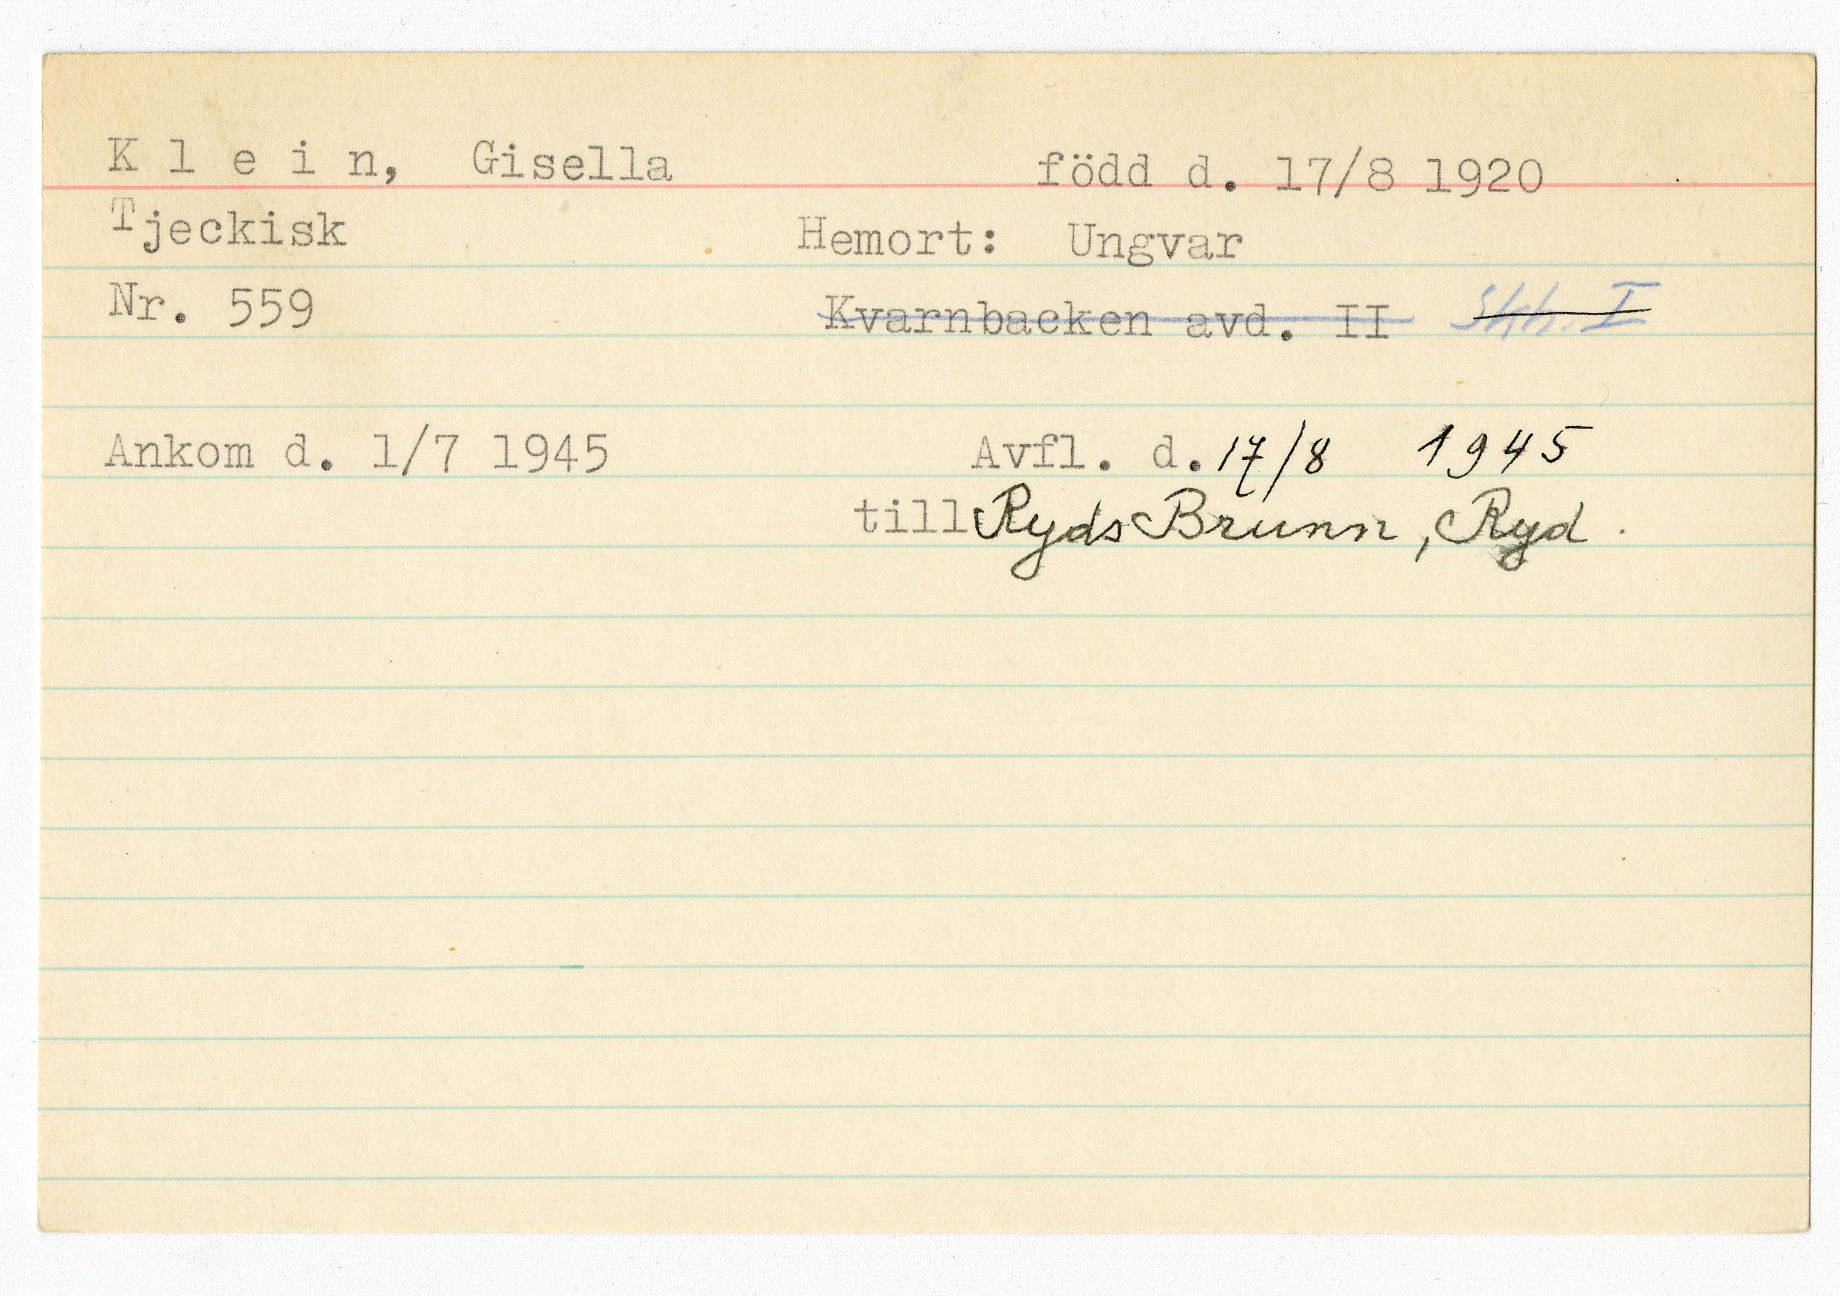 K l e i n, Gisella född d. 17/8 1920
Tjeckisk Hemort: Ungvar
Nr. 559 Kvarnbacken avd. II Skh. I
Ankom d. 1/7 1945 Avfl. d. 17/8 1945
till Ryds Brunn, Ryd.